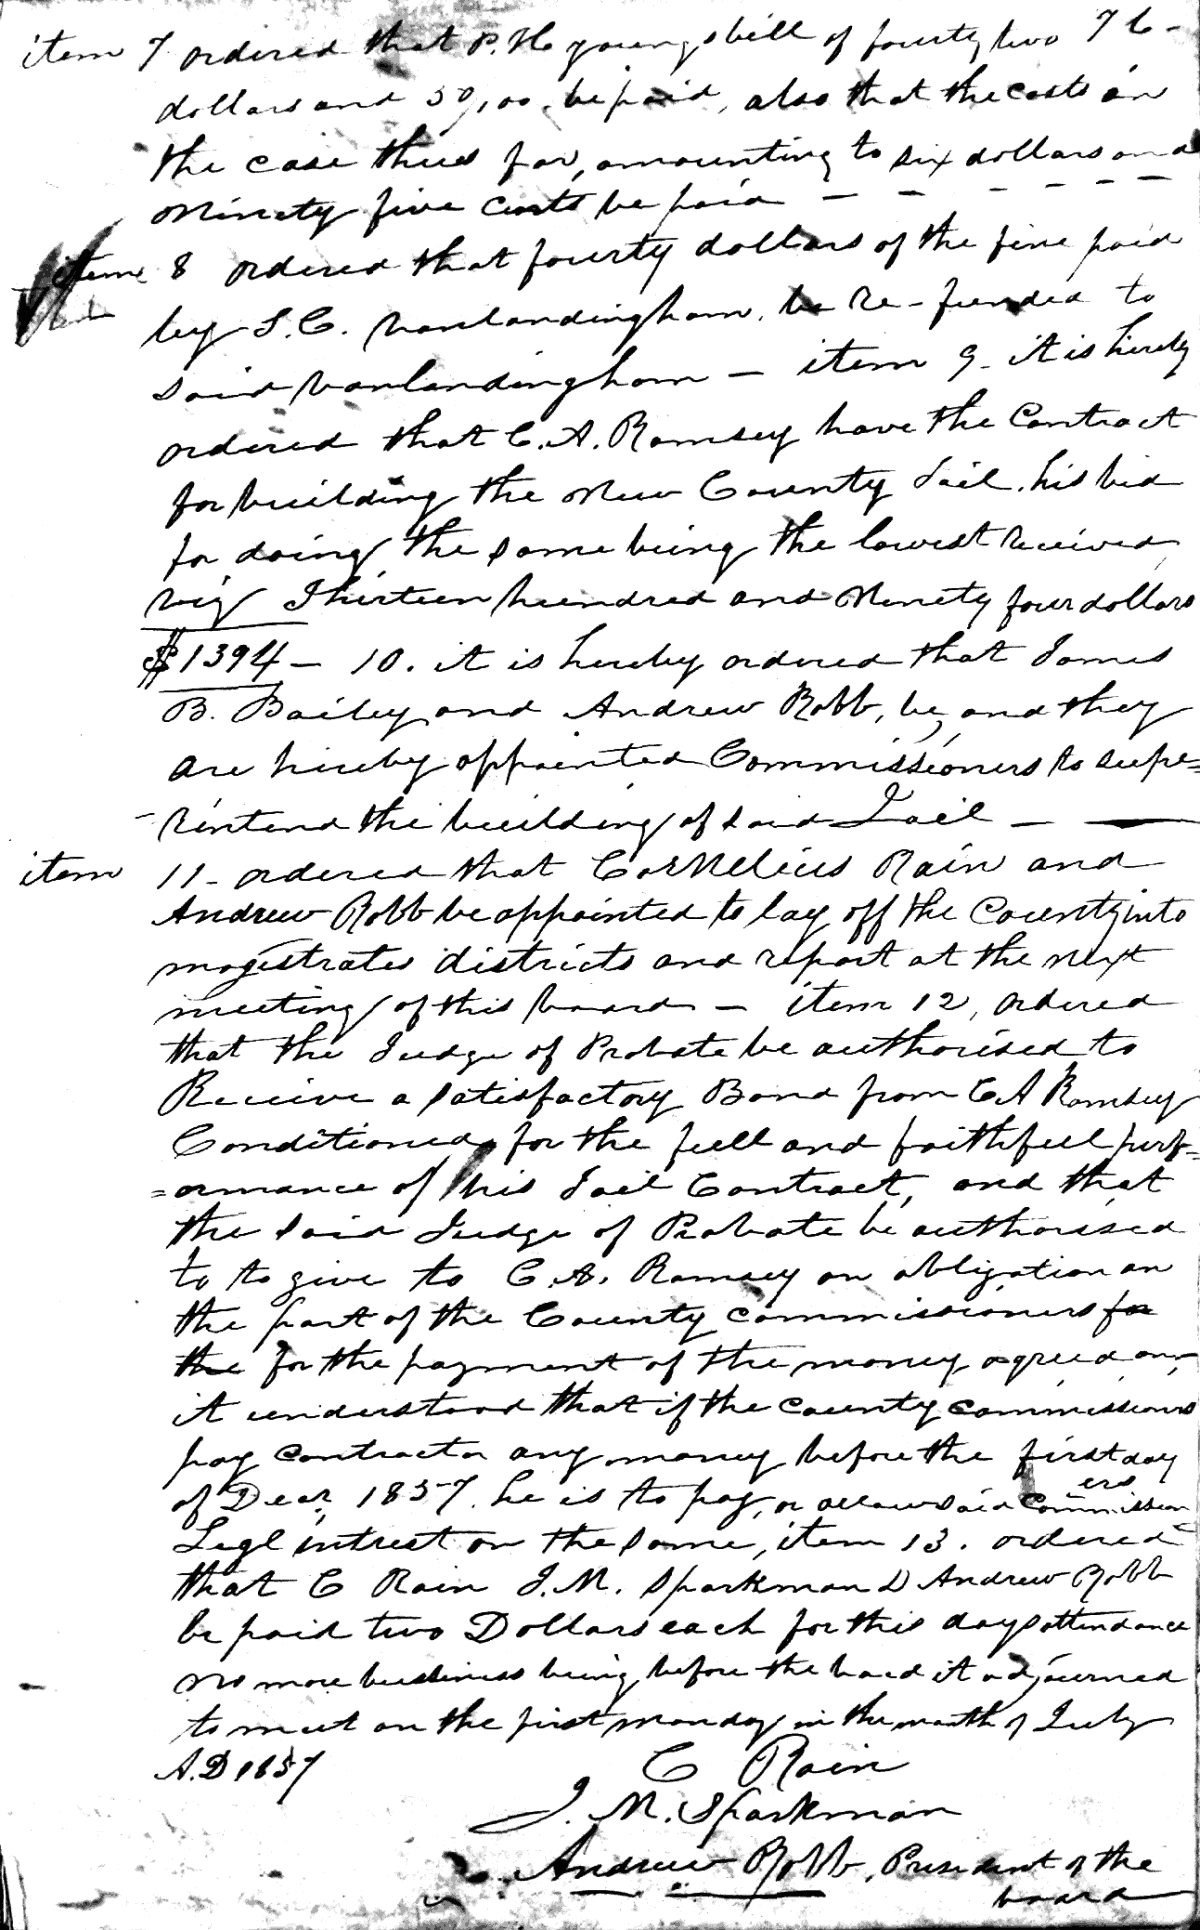 item 7 ordered that P. H. youngs bill of fourty two 76-
dollars and 50/100 be paid, also that the costs on
the case thus far, amounting to six dollars and
Ninety five cents be paid — — — — — —
item 8 ordered that fourty dollars of the fine paid
by S. C. Vanlandingham, be Re-funded to
said Vanlandingham — item 9- it is hereby
ordered that C. A. Ramsey have the Contract
for building the New County Jail, his bid
for doing the same being the lowest Received
viz Thirteen hundred and Ninety four dollars
$1394 — 10. it is hereby ordered that James
B. Bailey and Andrew Robb, be, and they
are hereby appointed Commissioners to supe=
rintend the building of said Jail — —
item 11- ordered that Cornelius Rain and
Andrew Robb be appointed to lay off the County into
magestrates districts and report at the next
meeting of this board — item 12, ordered
that the Judge of Probate be authorised to
Receive a satisfactory Bond from C A Ramsey
Conditioned for the full and faithfull perf=
=ormance of his Jail Contract, and that
the said Judge of Probate be authorised
to to give to C. A. Ramsey an obligation on
the part of the County Commissioners for
the for the payment of the money agreed on,—
it understood that if the County Commissioners
pay contractor any money before the first day
of Decr 1857, he is to pay, or allow said Commissioners
Legl intrest on the same, item 13. ordered
that C Rain J. M. Sparkman & Andrew Robb
be paid two Dollars each for this days attendance
no more business being before the board it adjourned
to meet on the first monday in the month of July
A.D 1857
C Rain
J. M. Sparkman
Andrew Robb, President of the
board